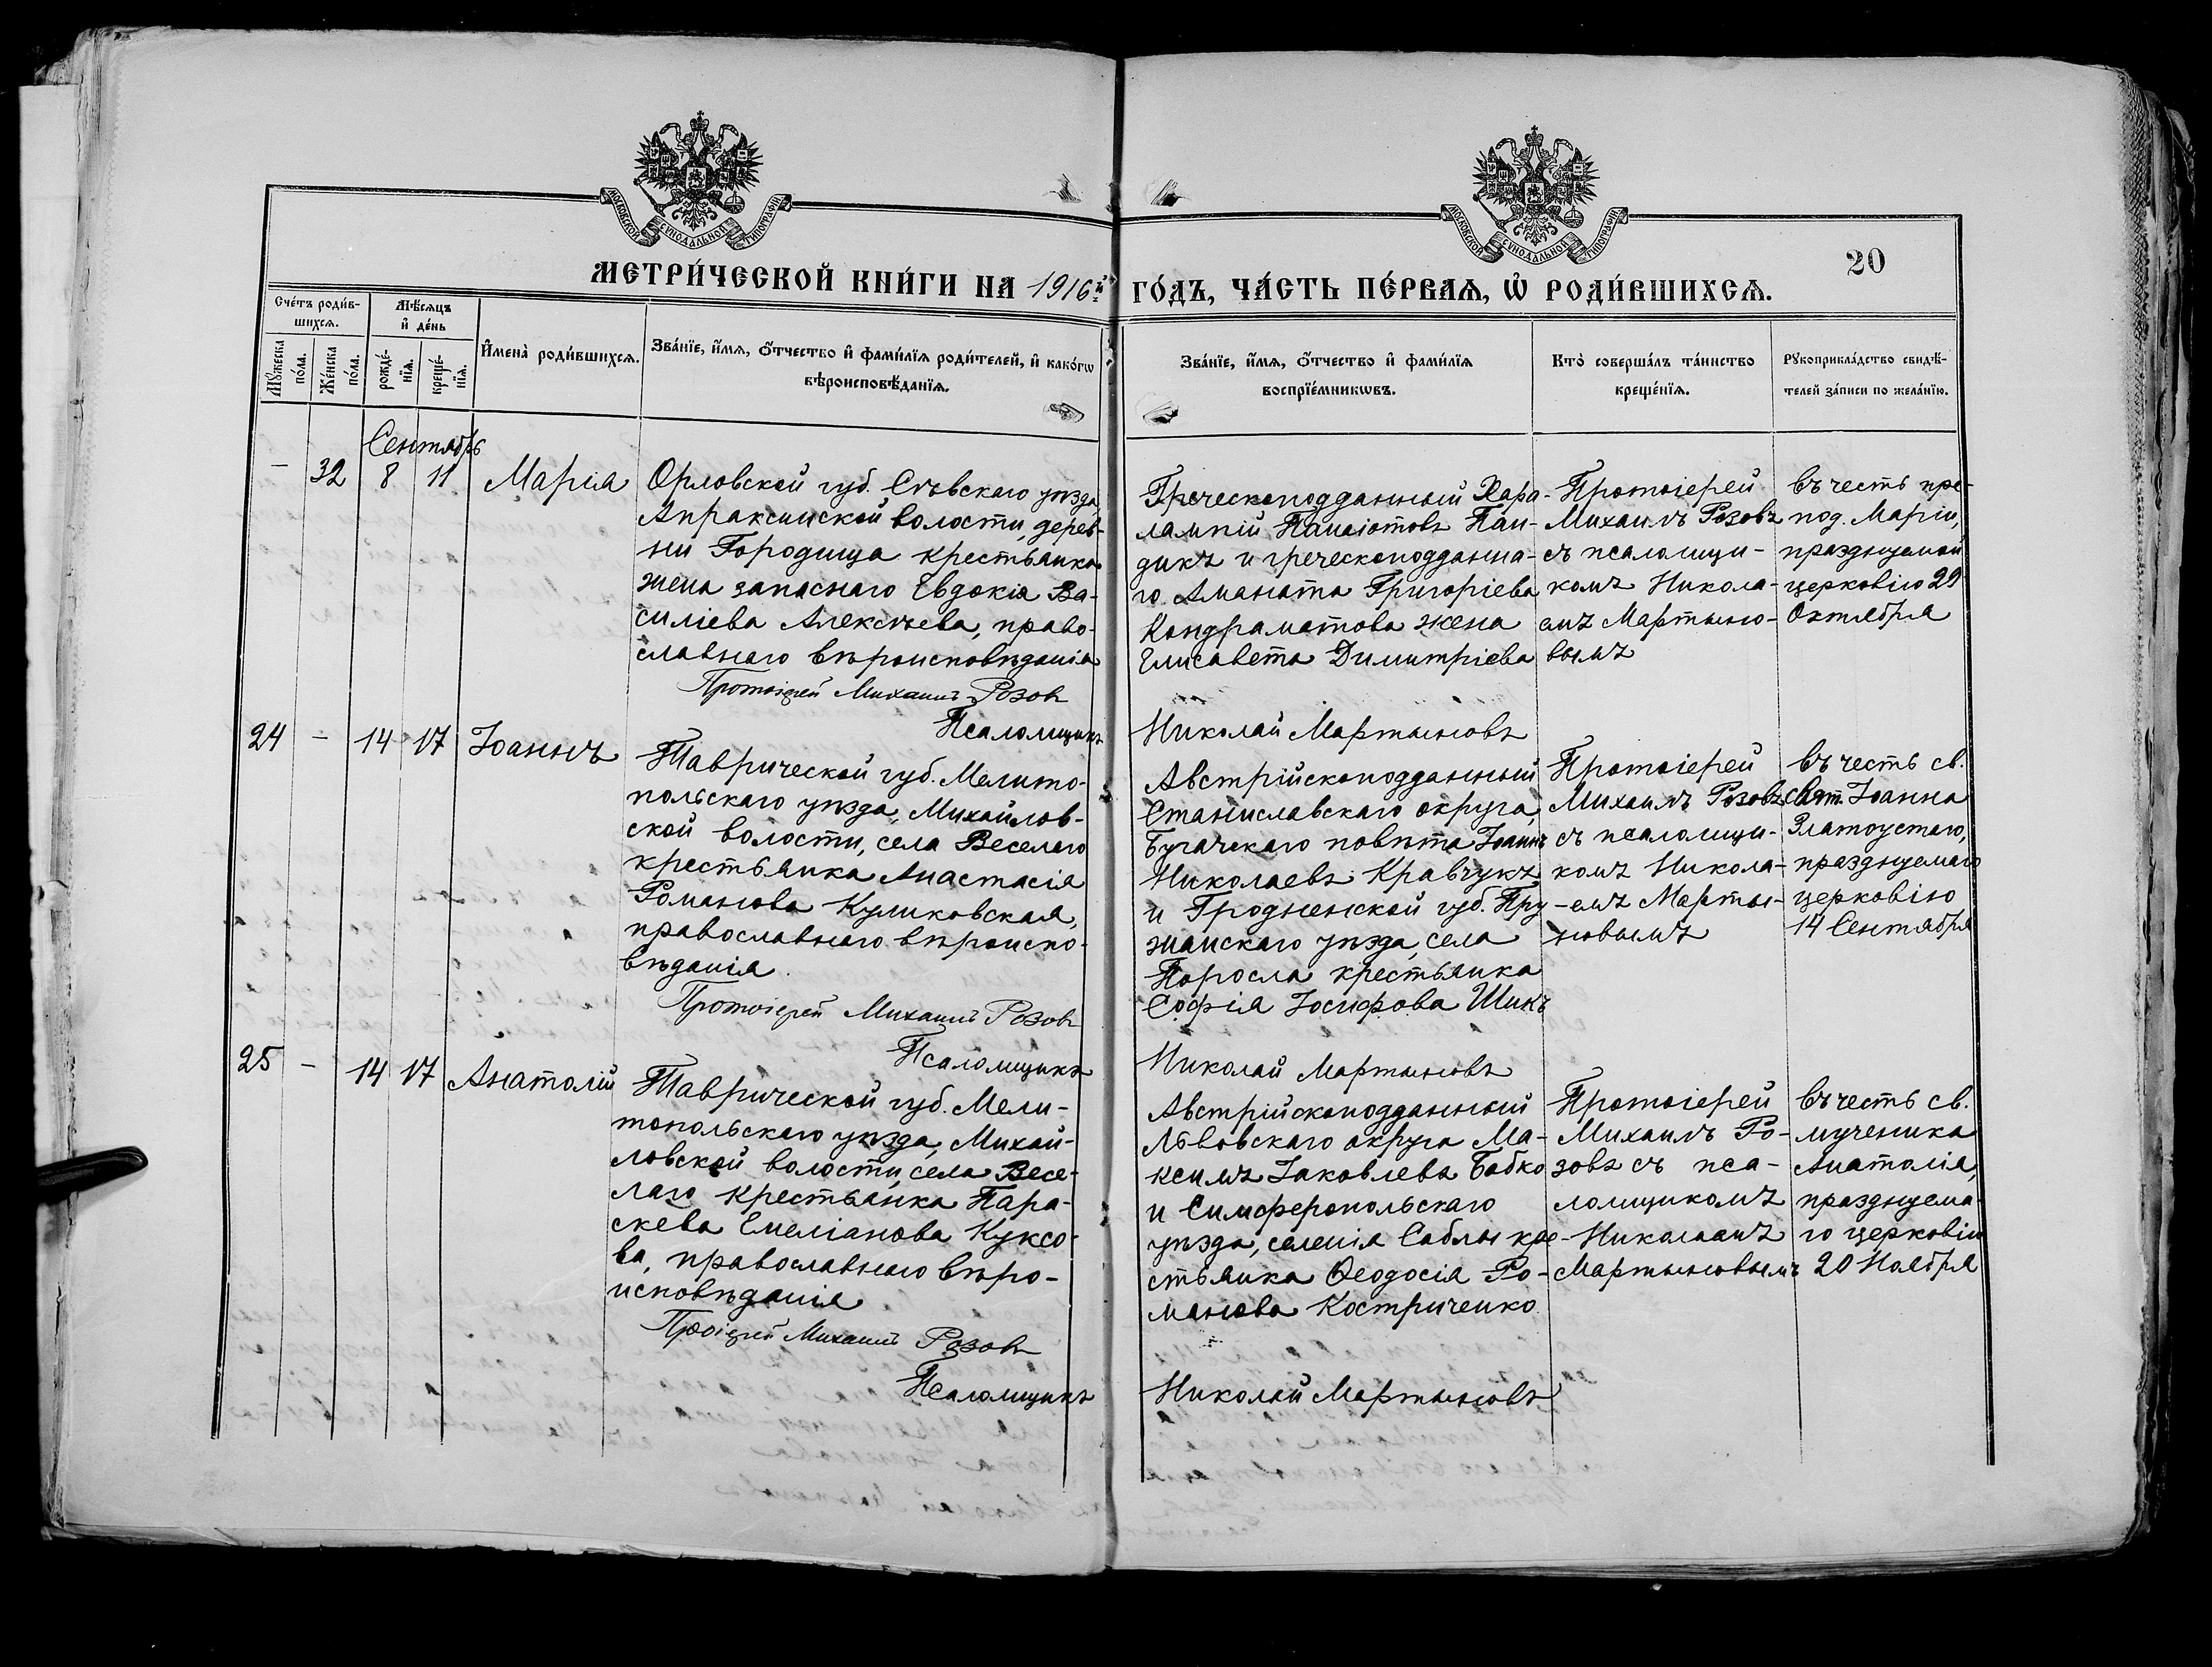 МОСКОВСКОЙ СѴНОДАЛЬНОЙ ТИПОГРАФІИ
МОСКОВСКОЙ СѴНОДАЛЬНОЙ ТИПОГРАФІИ
20
МЕТРИ́ЧЕСКОЙ КНИ́ГИ НА 1916й ГО́ДЪ, ЧА́СТЬ ПЕ́РВАѦ, Ѡ҆ РОДИ́ВШИХСѦ.
Сче́тъ роди́в-
шихсѧ.
Мѣ́сѧцъ
и҆ де́нь
Мꙋ́жеска
по́ла.
Же́нска
по́ла.
рожде́-
нїѧ.
креще́-
нїѧ.
И҆мена̀ роди́вшихсѧ.
Зва́нїе, и҆́мѧ, ѻ҆́тчество и҆ фами́лїѧ роди́телей, и҆ како́гѡ
вѣроисповѣ́данїѧ.
Зва́нїе, и҆́мѧ, ѻ҆́тчество и҆ фами́лїѧ
воспрїе́мникѡвъ.
Кто̀ соверша́лъ та́инство
креще́нїѧ.
Рꙋкоприкла́дство свидѣ́-
телей за́писи по жела́нїю.
Сентябрь
— 32 8 11 Марія
Орловской губ. Сѣвскаго уѣзда,
Апраксинской волости, дерев-
ни Городища крестьянка
жена запаснаго Евдокія Ва-
силіева Алексѣева, право-
славнаго вѣроисповѣданія
Протоіерей Михаилъ Розовъ
Псаломщикъ
Греческоподданный Хара-
лампій Панаіотовъ Пан-
дикъ и греческоподданна-
го Аманата Григоріева
Кондраматова жена
Елисавета Димитріева
Николай Мартыновъ
Протоіерей
Михаилъ Розовъ
съ псаломщи-
комъ Никола-
емъ Мартыно-
вымъ
въ честь пре-
под. Маріи,
празднуемой
церковію 29
Октября
24 — 14 17 Іоаннъ
Таврической губ. Мелито-
польскаго уѣзда, Михайлов-
ской волости, села Веселаго
крестьянка Анастасія
Романова Куликовская,
православнаго вѣроиспо-
вѣданія.
Протоіерей Михаилъ Розовъ
Псаломщикъ
Австрійскоподданный
Станиславскаго округа,
Бучачскаго повѣта Іоаннъ
Николаевъ Кравчукъ
и Гродненской губ. Пру-
жанскаго уѣзда, села
Поросла крестьянка
Софія Іосифова Шикъ
Николай Мартыновъ
Протоіерей
Михаилъ Розовъ
съ псаломщи-
комъ Никола-
емъ Марты-
новымъ
въ честь св.
свят. Іоанна
Златоустаго,
празднуемаго
церковію
14 Сентября
25 — 14 17 Анатолій
Таврической губ. Мели-
топольскаго уѣзда, Михай-
ловской волости, села Весе-
лаго крестьянка Пара-
скева Емеліанова Куксо-
ва, православнаго вѣро-
исповѣданія
Протоіерей Михаилъ Розовъ
Псаломщикъ
Австрійскоподданный
Львовскаго округа Ма-
ксимъ Іаковлевъ Бабко
и Симферопольскаго
уѣзда, селенія Саблы кре-
стьянка Ѳеодосія Ро-
манова Костриченко
Николай Мартыновъ
Протоіерей
Михаилъ Ро-
зовъ съ пса-
ломщикомъ
Николаемъ
Мартыновымъ
въ честь св.
мученика
Анатолія,
празднуема-
го церковію
20 Ноября